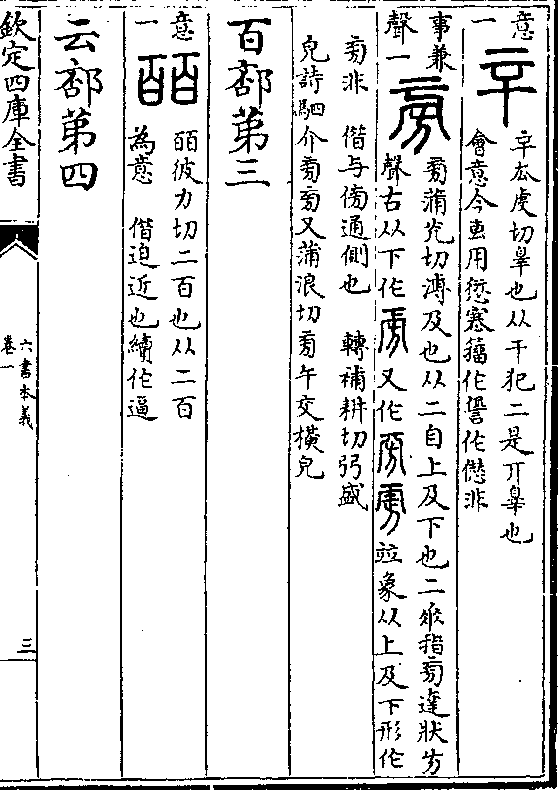 意一
䇂
䇂厺虔切辠也从干犯二是丌辠也
會意今專用愆寒籀作諐作僁非
事兼聲一
㫄
㫄蒲光切溥及也从二自上及下也二𠂢指㫄達狀方
聲古从下作又作竝象从上及下形作
㫄非 借与傍通側也 轉補耕切盛
皃詩駟介㫄㫄又蒲浪切㫄午交橫皃
百部第三
意一
皕
皕彼力切二百也从二百
為意 借迫近也續作逼
云部第四
欽定四庫全書
六書本義
卷一
三